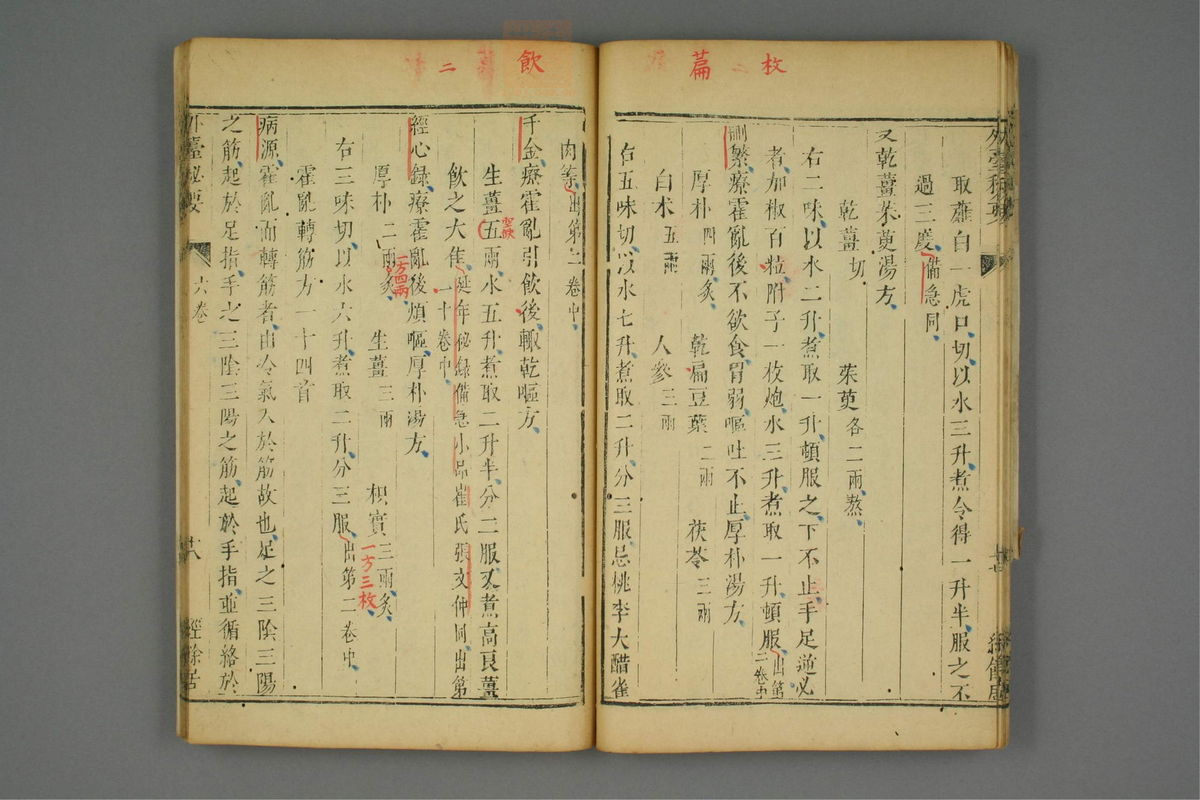 枚二篇
取薤白一虎口切以水三升煮令得一升半服之不
過三度備急同
又乾薑茱萸湯方
乾薑切 茱萸各二兩熬
右二味以水二升煮取一升頓服之下不止手足逆必
者加椒百粒附子一枚炮水三升煮取一升頓服出第二卷中
刪繁療霍亂後不欲食胃弱嘔吐不止厚朴湯方
厚朴四兩炙 乾扁豆葉二兩 茯苓三兩
白朮五兩 人參三兩
右五味切以水七升煮取二升分三服忌桃李大醋雀
飲二
肉等出第二卷中
千金療霍亂引飲後輙乾嘔方
生薑五兩水五升煮取二升半分二服又煮高良薑
飲之大佳延年祕錄備急小品崔氏張文仲同出第
一十卷中
經心錄療霍亂後煩嘔厚朴湯方
厚朴二兩炙 生薑三兩 枳實三兩炙
一方四兩
一方三枚
右三味切以水六升煮取二升分三服出第二卷中
霍亂轉筋方一十四首
病源霍亂而轉筋者由冷氣入於筋故也足之三陰三陽
之筋起於足指手之三陰三陽之筋起於手指並循絡於
外臺祕要 六卷 十八 經餘居